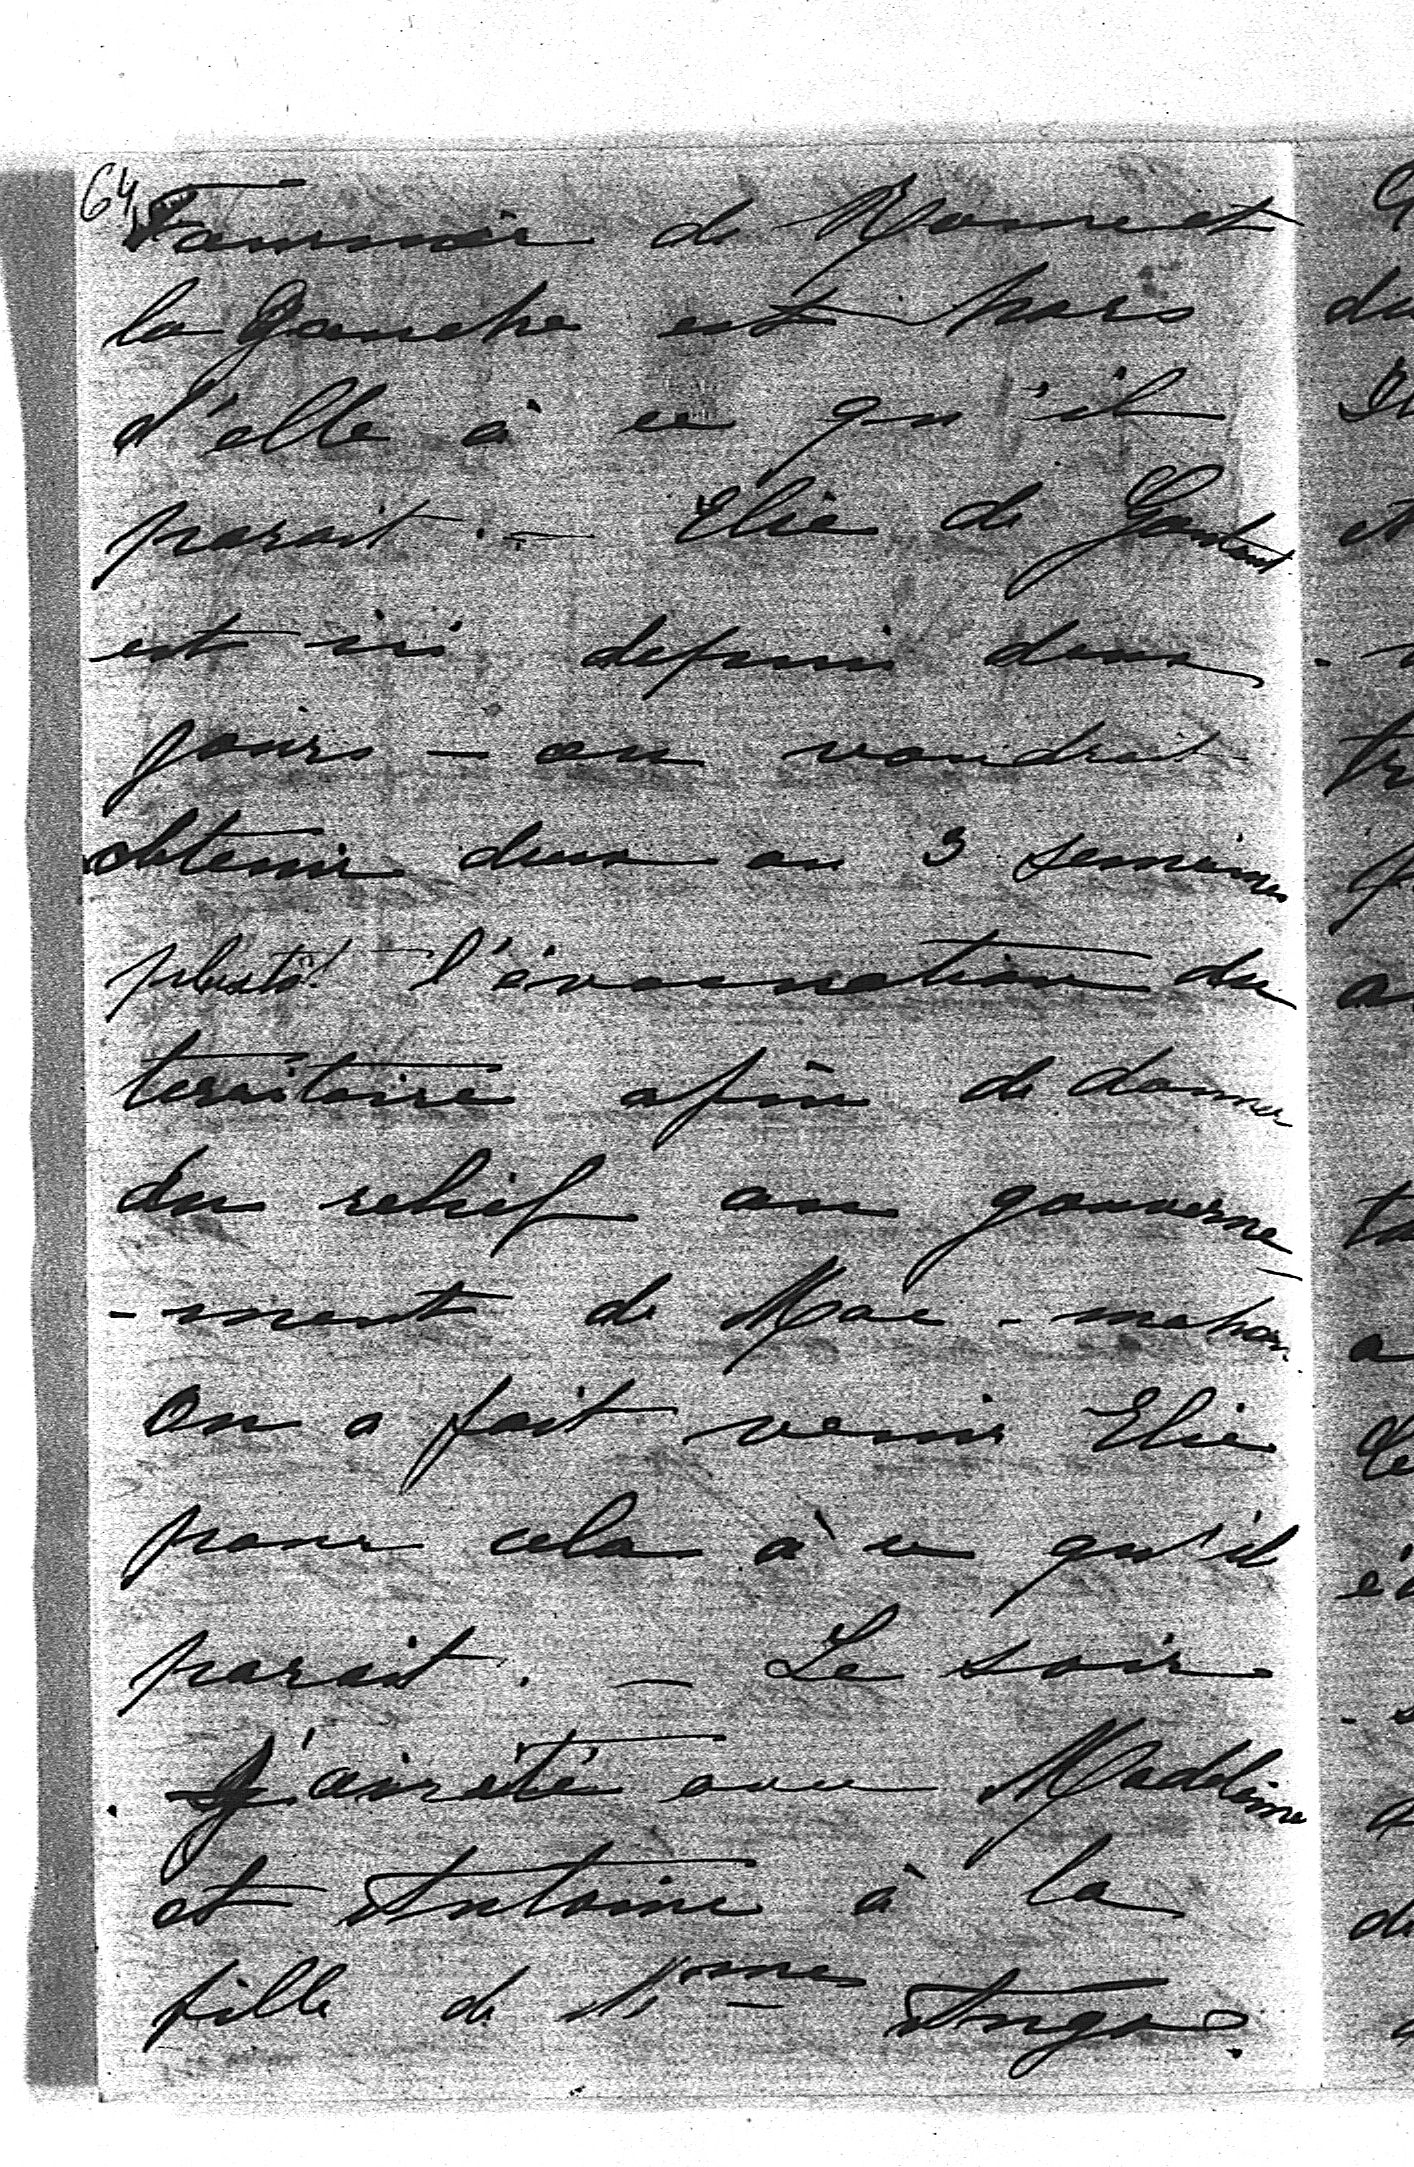 64
Fournier de Rome et
la Gauche est hors
d'elle à ce qu'il
parait. — Elie de Gontaut
est ici depuis deux
jours — on voudrait
obtenir deux ou 3 semaines
plustôt l'évacuation du
territoire afin de donner
du relief au gouverne
-ment de Mac-mahon.
on a fait venir Elie
pour cela à ce qu'il
parait. — Le soir
J'ai été avec Madeleine
et Antoine à la
fille de Mme Angot.